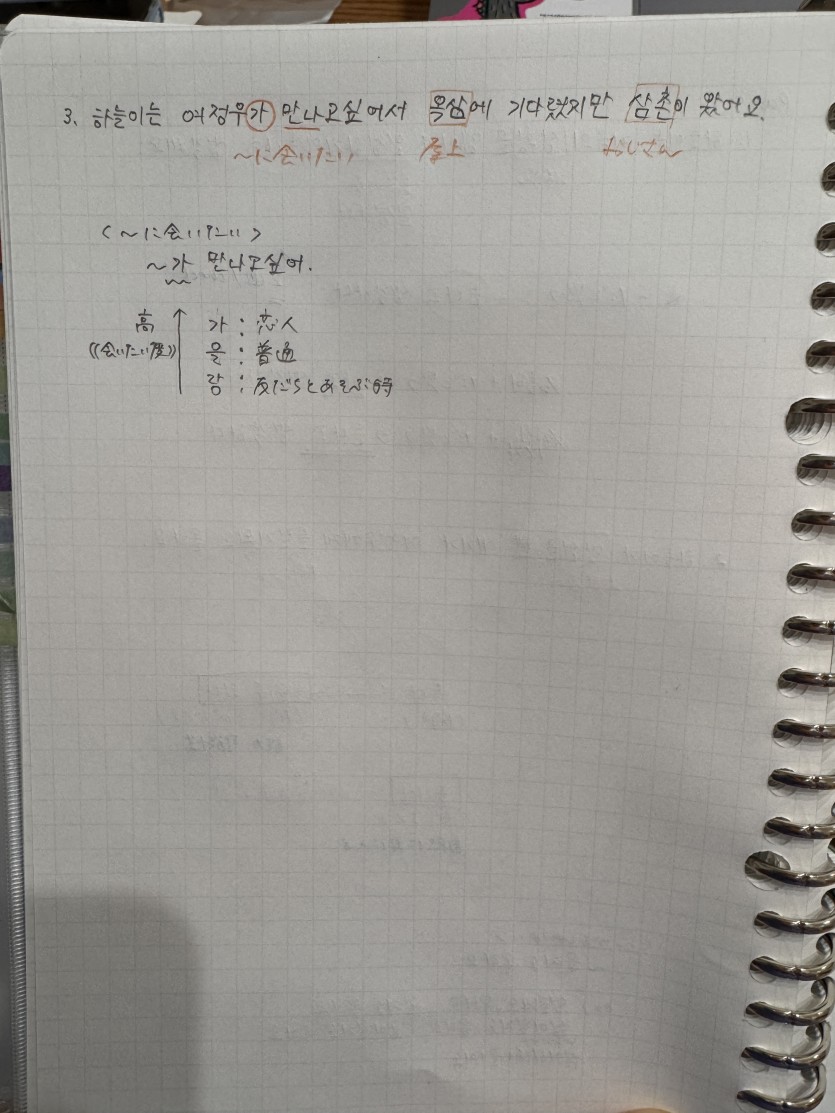 3. 하늘이는 여정우가 만나고싶어서 옥상에 기다렸지만 삼촌이 왔어요.
~に会いたい 屋上 おじさん
<~に会いたい>
~가 만나고싶어.
高 가 : 恋人
((会いたい度)) 을 : 普通
랑 : 友だちとあそぶ時